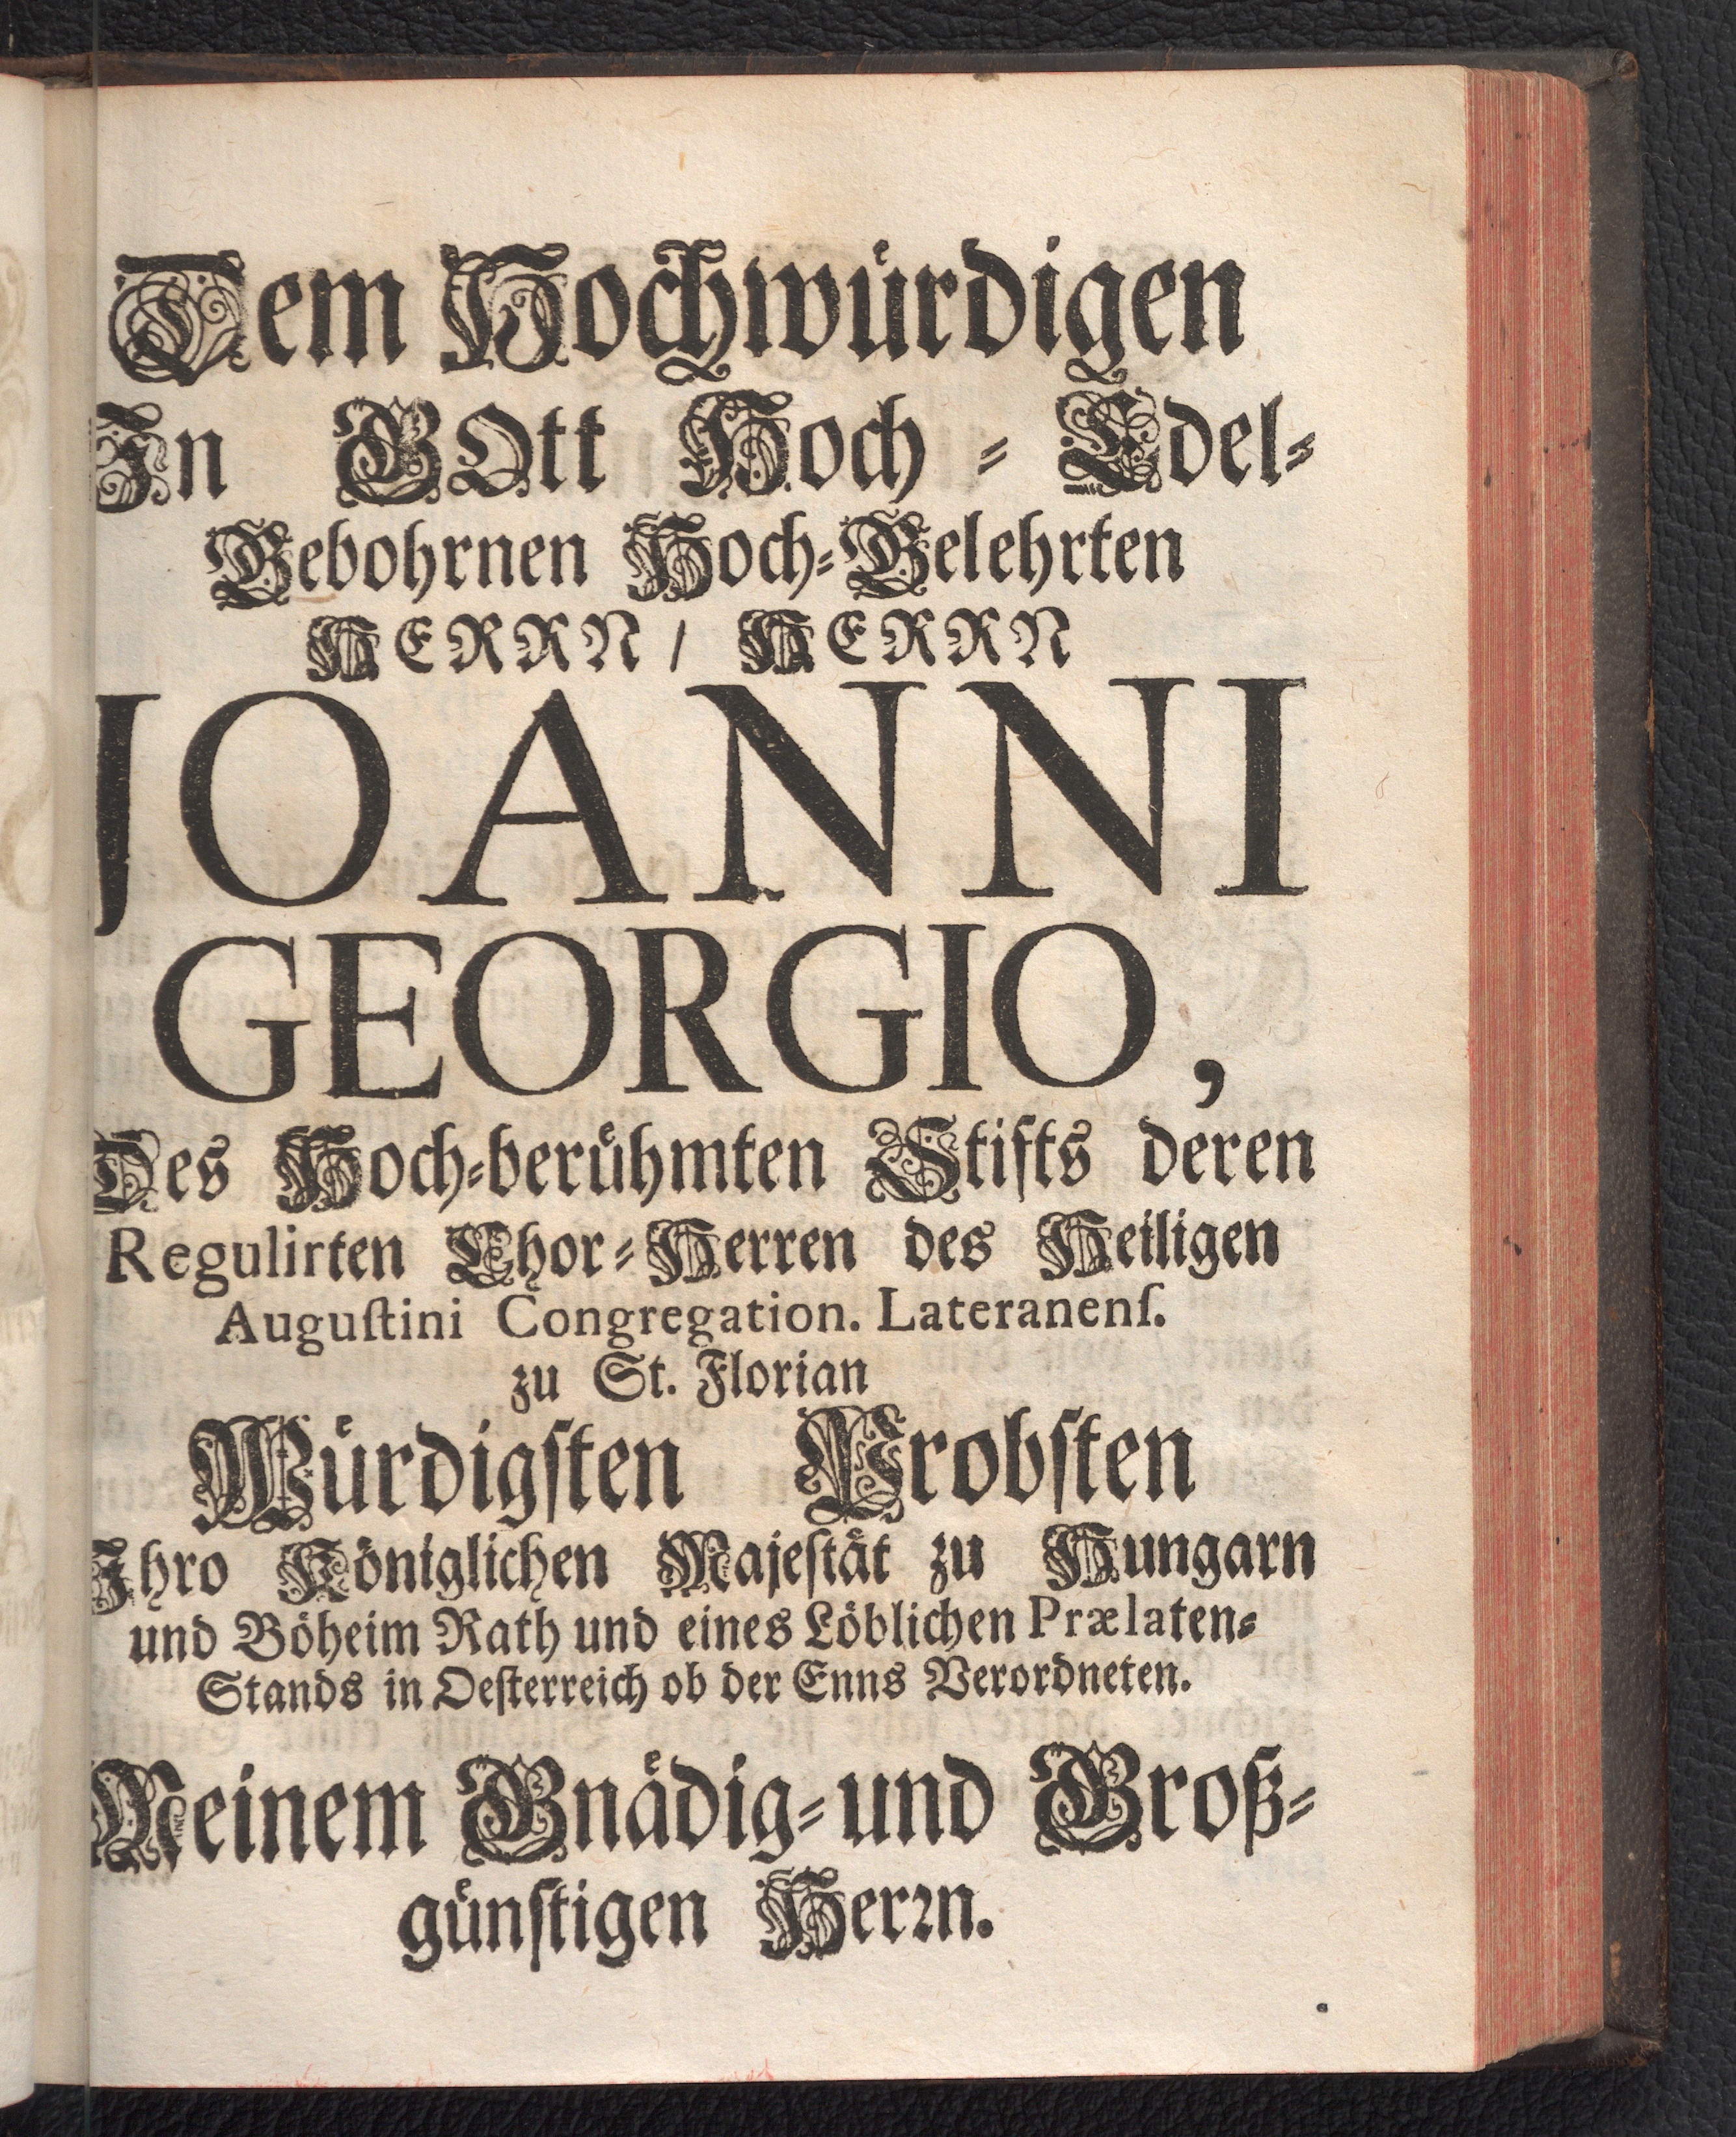 Dem Hochwürdigen
In GOtt Hoch-Edel-
Gebohrnen Hoch-Gelehrten
HERRN/ HERRN
JOANNI
GEORGIO,
Des Hoch-berühmten Stifts deren
Regulirten Chor-Herren des Heiligen
Auguſtini Congregation. Lateranenſ.
zu St. Florian
Würdigſten Probſten
Ihro Königlichen Majeſtät zu Hungarn
und Böheim Rath und eines Löblichen Prælaten-
Stands in Oeſterreich ob der Enns Verordneten.
Meinem Gnädig-und Groß-
günſtigen Herꝛn.